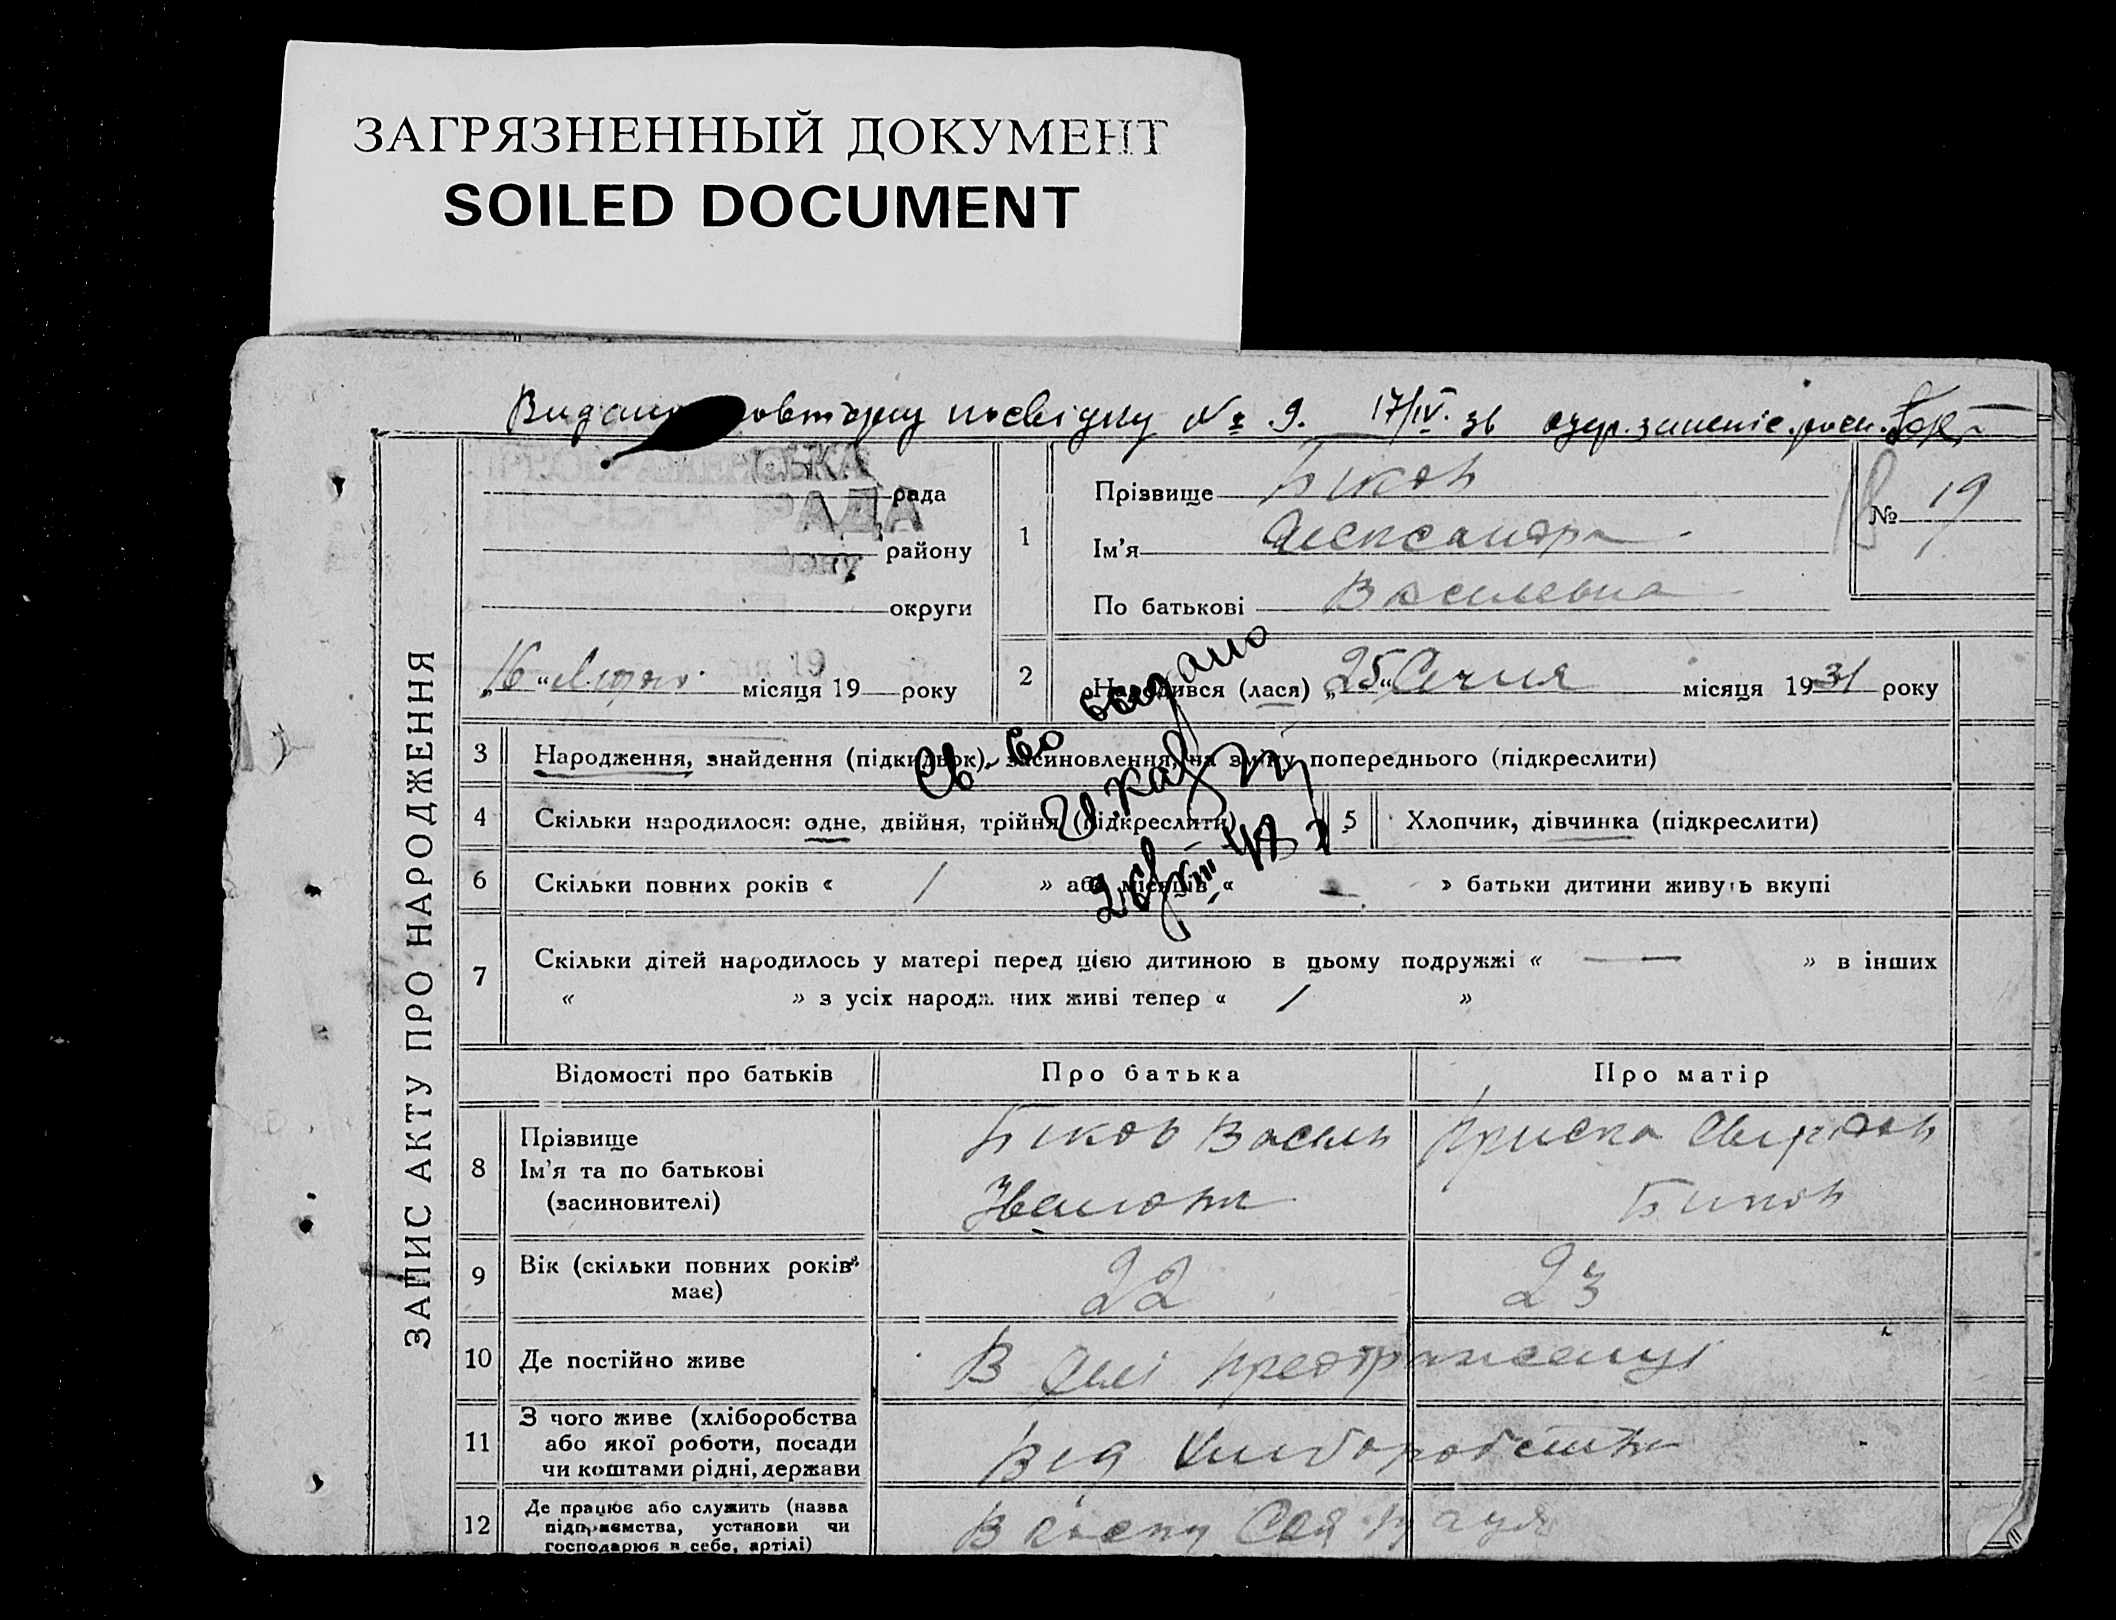 ЗАГРЯЗНЕННЫЙ ДОКУМЕНТ
SOILED DOCUMENT
посвідку № 9. 17/IV. 36
ЗАПИС АКТУ ПРО НАРОДЖЕННЯ
РАДА
рада
району
округи
"16" місяця 19 року
1
Прізвище Биков
Ім'я Александра
По батькові Василевна
№ 19
2 Народився (лася) "25" Січня місяця 1931 року
Св-во выдано
3 Народження, знайдення (підкидьок), засиновлення, на зміну попереднього (підкреслити)
4 Скільки народилося: одне, двійня, трійня (підкреслити)
5 Хлопчик, дівчинка (підкреслити)
6 Скільки повних років « / » або місяців « — » батьки дитини живуть вкупі
7 Скільки дітей народилось у матері перед цією дитиною в цьому подружжі « — » в інших
« » з усіх народж. них живі тепер « / »
Відомості про батьків Про батька Про матір
8 Прізвище
Ім'я та по батькові
(засиновителі)
Биков Василь
Іванович
Приска
Биков
9 Вік (скільки повних років має) 22 23
10 Де постійно живе В селі
11 З чого живе (хліборобства
або якої роботи, посади
чи коштами рідні, держави
Від Хліборобства
12 Де працює або служить (назва
підприємства, установи чи
господарює в себе, артілі)
В